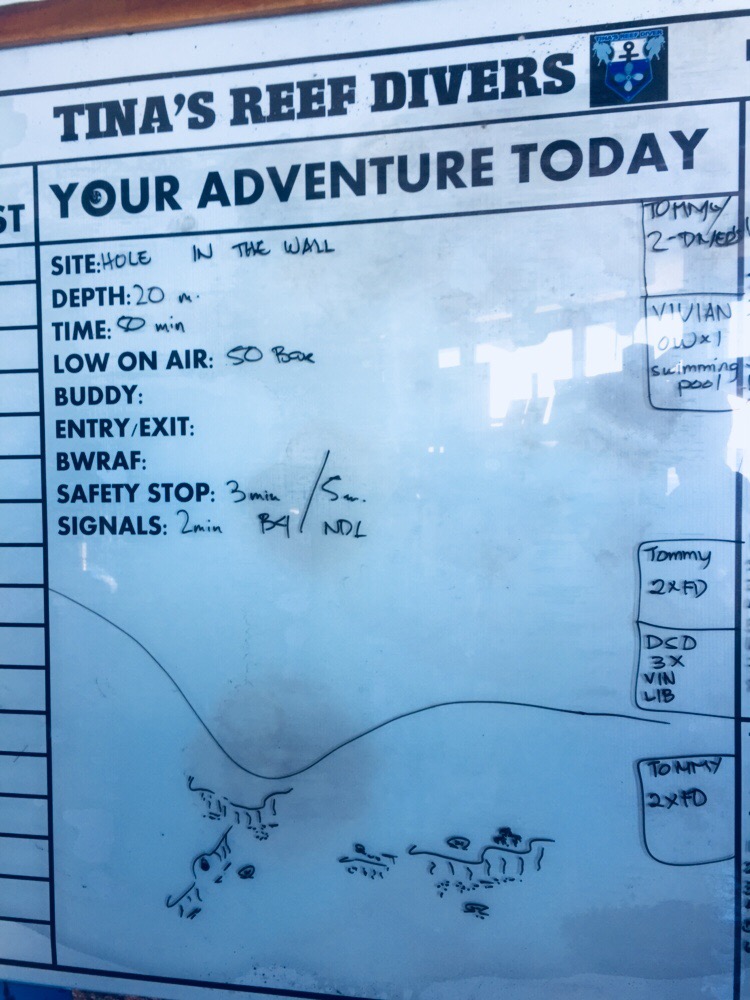 TINA'S REEF DIVERS
TINA'S REEF DIVER
YOUR ADVENTURE TODAY
ST
SITE: HOLE IN THE WALL
DEPTH: 20 m.
TIME: min
LOW ON AIR: 50 Bar
BUDDY:
ENTRY/EXIT:
BWRAF:
SAFETY STOP: 3min / 5m.
SIGNALS: 2min / NDL
TOMMY/
VIVIAN
OW x 1
swimming
pool
Tommy
2XFD
DSD
3X
VIN
LIB
TOMMY
2XFD